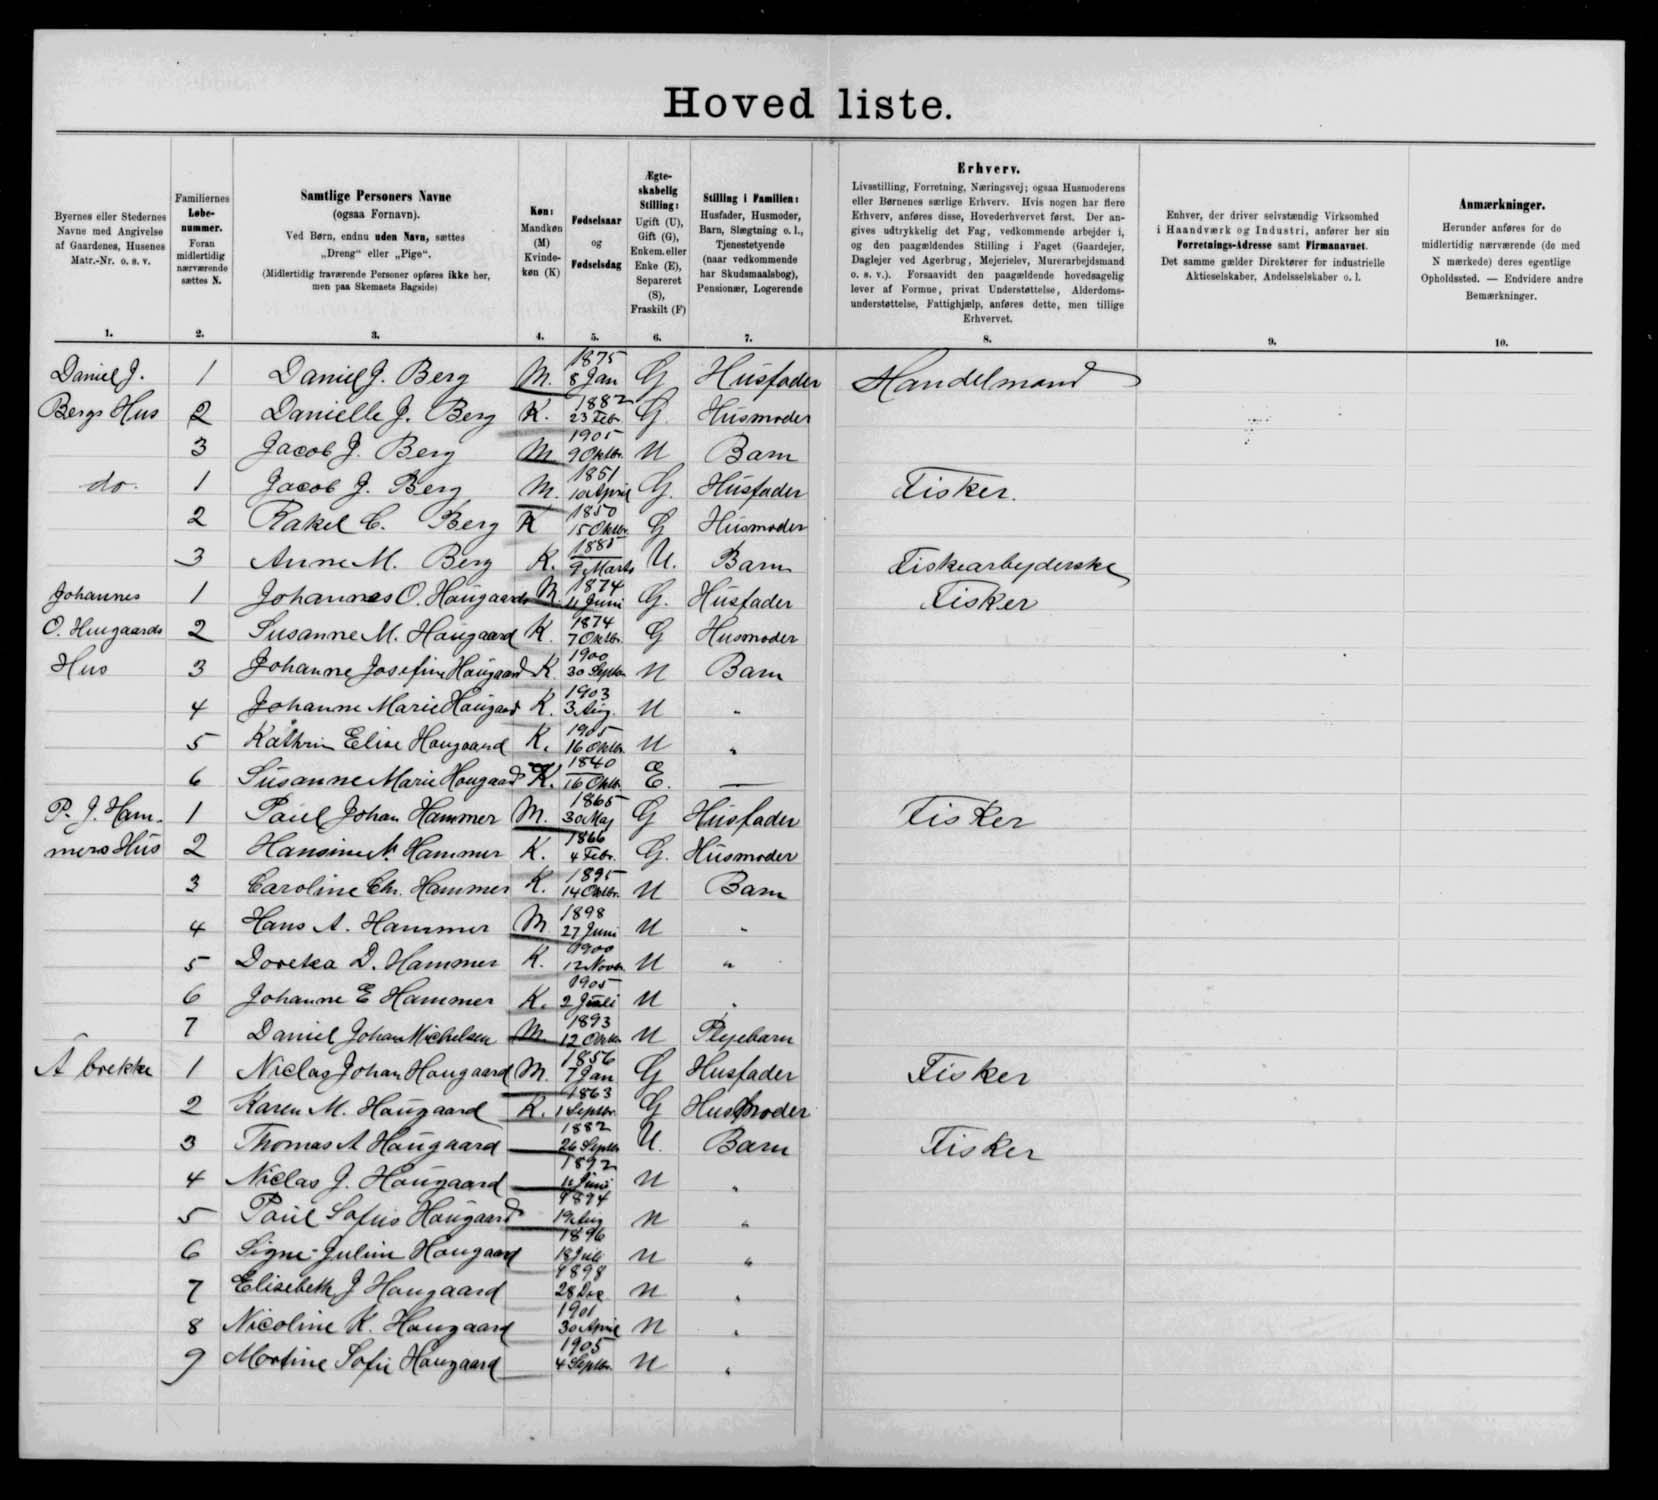 Hoved liste.
Byernes eller Stedernes
Navne med Angivelse
af Gaardenes, Husenes
Matr.-Nr. o. s. v.
1.
Familiernes
Løbe-
nummer.
Foran
midlertidig
nærværende
sættes N.
2.
Samtlige Personers Navne
(ogsaa Fornavn).
Ved Børn, endnu uden Navn, sættes
„Dreng“ eller „Pige“.
(Midlertidig fraværende Personer opføres ikke her,
men paa Skemaets Bagside)
3.
Køn:
Mandkøn
(M)
Kvinde-
køn (K)
4.
Fødselsaar
og
Fødselsdag
5.
Ægte-
skabelig
Stilling:
Ugift (U),
Gift (G),
Enkem. eller
Enke (E),
Separeret
(S),
Fraskilt (F)
6.
Stilling i Familien:
Husfader, Husmoder,
Barn, Slægtning o. l.,
Tjenestetyende
(naar vedkommende
har Skudsmaalsbog),
Pensionær, Logerende
7.
Erhverv.
Livsstilling, Forretning, Næringsvej; ogsaa Husmoderens
eller Børnenes særlige Erhverv. Hvis nogen har flere
Erhverv, anføres disse, Hovederhvervet først. Der an-
gives udtrykkelig det Fag, vedkommende arbejder i,
og den paagældendes Stilling i Faget (Gaardejer,
Daglejer ved Agerbrug, Mejerielev, Murerarbejdsmand
o. s. v.). Forsaavidt den paagældende hovedsagelig
lever af Formue, privat Understøttelse, Alderdoms-
understøttelse, Fattighjælp, anføres dette, men tillige
Erhvervet.
8.
Enhver, der driver selvstændig Virksomhed
i Haandværk og Industri, anfører her sin
Forretnings-Adresse samt Firmanavnet.
Det samme gælder Direktører for industrielle
Aktieselskaber, Andelsselskaber o. l.
9.
Anmærkninger.
Herunder anføres for de
midlertidig nærværende (de med
N mærkede) deres egentlige
Opholdssted. — Endvidere andre
Bemærkninger.
10.
Daniel J. 1 Daniel J. Berg M. 1875 8 Jan G Husfader Handelmand
Bergs Hus 2 Danielle J. Berg K. 1882 23 Febr. G. Husmoder
3 Jacob J. Berg M 1905 9 Oktbr. U Barn
do. 1 Jacob J. Berg M. 1851 10 April G. Husfader Fisker.
2 Rakel C. Berg K 1850 15 Oktbr. G Husmoder
3 Anne M. Berg K. 9 Marts U. Barn Fiskearbejderske
Johannes 1 Johannes O. Haugaard M. 1874 11 Juni G. Husfader Fisker
O. Haugaards 2 Susanne M. Haugaard K. 1874 7 Oktbr. G Husmoder
Hus 3 Johanne Josefine Haugaard K. 1900 30 Septbr. U Barn
4 Johanne Marie Haugaard K. 1903 3 Aug. U "
5 Kathrin Elise Haugaard K. 1905 16 Oktbr. U "
6 Susanne Marie Haugaard K. 1840 16 Oktbr. E. —
P. J. Ham- 1 Paul Johan Hammer M. 1865 30 Maj G Husfader Fisker
mers Hus 2 Hansine M. Hammer K. 1866 4 Febr. G. Husmoder
3 Caroline Chr. Hammer K. 1895 14 Oktbr. U Barn
4 Hans A. Hammer M 1898 27 Juni U "
5 Dorthea D. Hammer K. 1900 12 Novbr. U "
6 Johanne E Hammer K. 1905 2 Juli U "
7 Daniel Johan Michelsen M. 1893 12 Oktbr. U Plejebarn
Á brekke 1 Niclas Johan Haugaard M. 1856 7 Jan G Husfader Fisker
2 Karen M. Haugaard K. 1863 1 Septbr. G Husmoder
3 Thomas A Haugaard 1882 26 Septbr U. Barn Fisker
4 Niclas J. Haugaard 1892 11 Juni U "
5 Paul Sofus Haugaard 1894 19 Aug U "
6 Signe Juline Haugaard 1896 18 Juli U "
7 Elisebeth J Haugaard 1898 28 Dec. U "
8 Nicoline K. Haugaard 1901 30 April U "
9 Martine Sofie Haugaard 1905 4 Septbr. U "